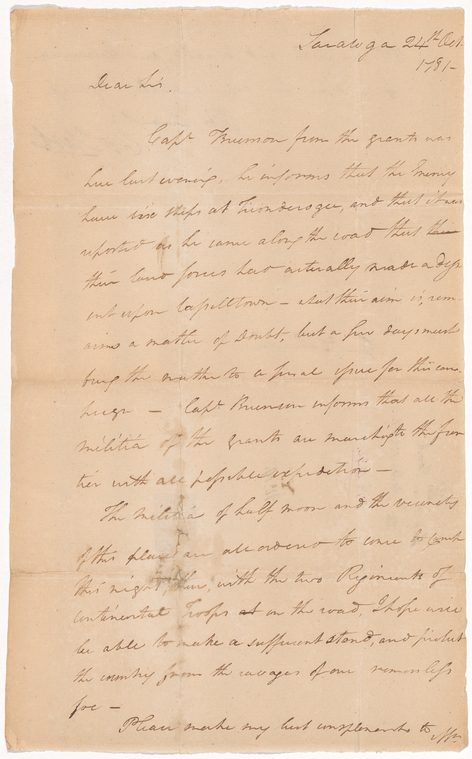 Saratoga 24th Oct.
1781-
Dear Sir.
Capt Brunson from the grants was
here last evening, he informs that the Enemy
have six ships at Tionderoga, and that it was
reported as he came along the road that
their land forces had actually made a des-
ent upon Casselltown - What their aim is, rem-
ains a matter of Doubt, but a few days must
bring the matter to a final issue for this cam
- Capt Brunson informs that all the
militia of the grants are marching to the fron
tier with all possible expedition -
The Militia of half moon and the vicinity
of this place are all ordered to come to
this night, these, with the two Regiments of
continental Troops on the road, I hope will
be able to make a sufficient stand, and protect
the country from the ravages of our remorsless
foe -
Please make my best complements to